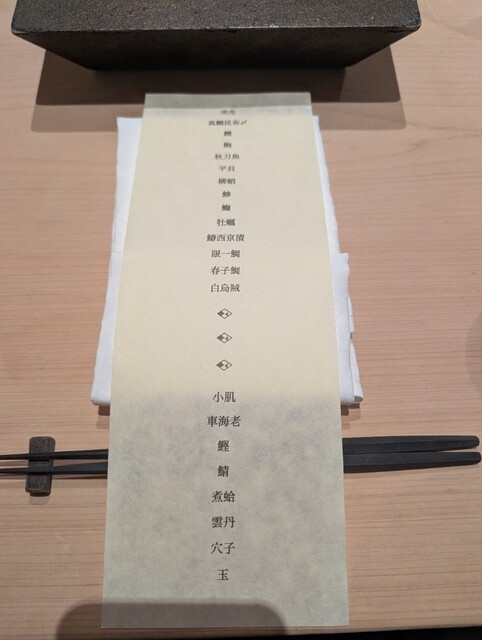 真鯛昆布〆
鱧
鮑
秋刀魚
平貝
鰤
牡蠣
鰆西京漬
眼一鯛
春子鯛
白烏賊
小肌
車海老
鰹
鯖
煮蛤
雲丹
穴子
玉